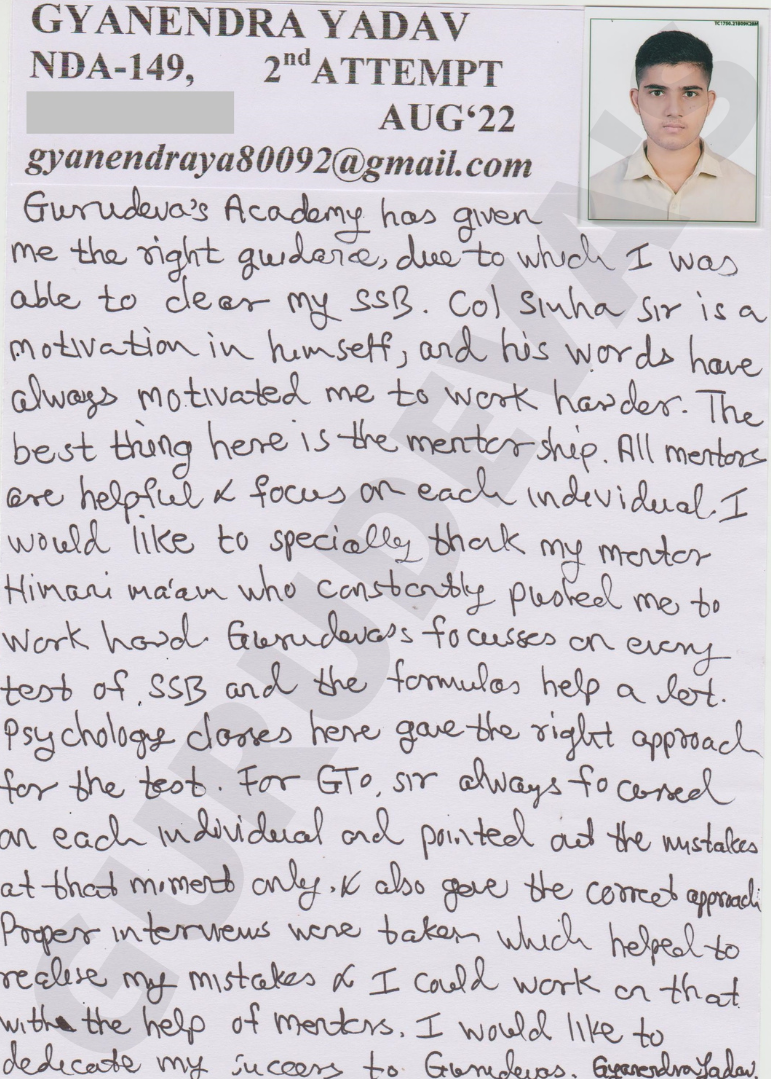 GYANENDRA YADAV
NDA-149, 2nd ATTEMPT
AUG‘22
gyanendraya80092@gmail.com
Gurudeva's Academy has given
me the right guidance, due to which I was
able to clear my SSB. Col Sinha Sir is a
motivation in himself, and his words have
always motivated me to work harder. The
best thing here is the mentorship. All mentors
are helpful & focus on each individual. I
would like to specially thank my mentor
Himani ma'am who constantly pushed me to
work hard. Gurudevas focusses on every
test of SSB and the formulas help a lot.
Psychology classes here gave the right approach
for the test. For GTO, sir always focused
on each individual and pointed out the mistakes
at that moment only. & also gave the correct approach
Proper interviews were taken which helped to
realise my mistakes & I could work on that
with the help of mentors. I would like to
dedicate my success to Gurudevas. Gyanendra Yadav.
GURUDEVAS